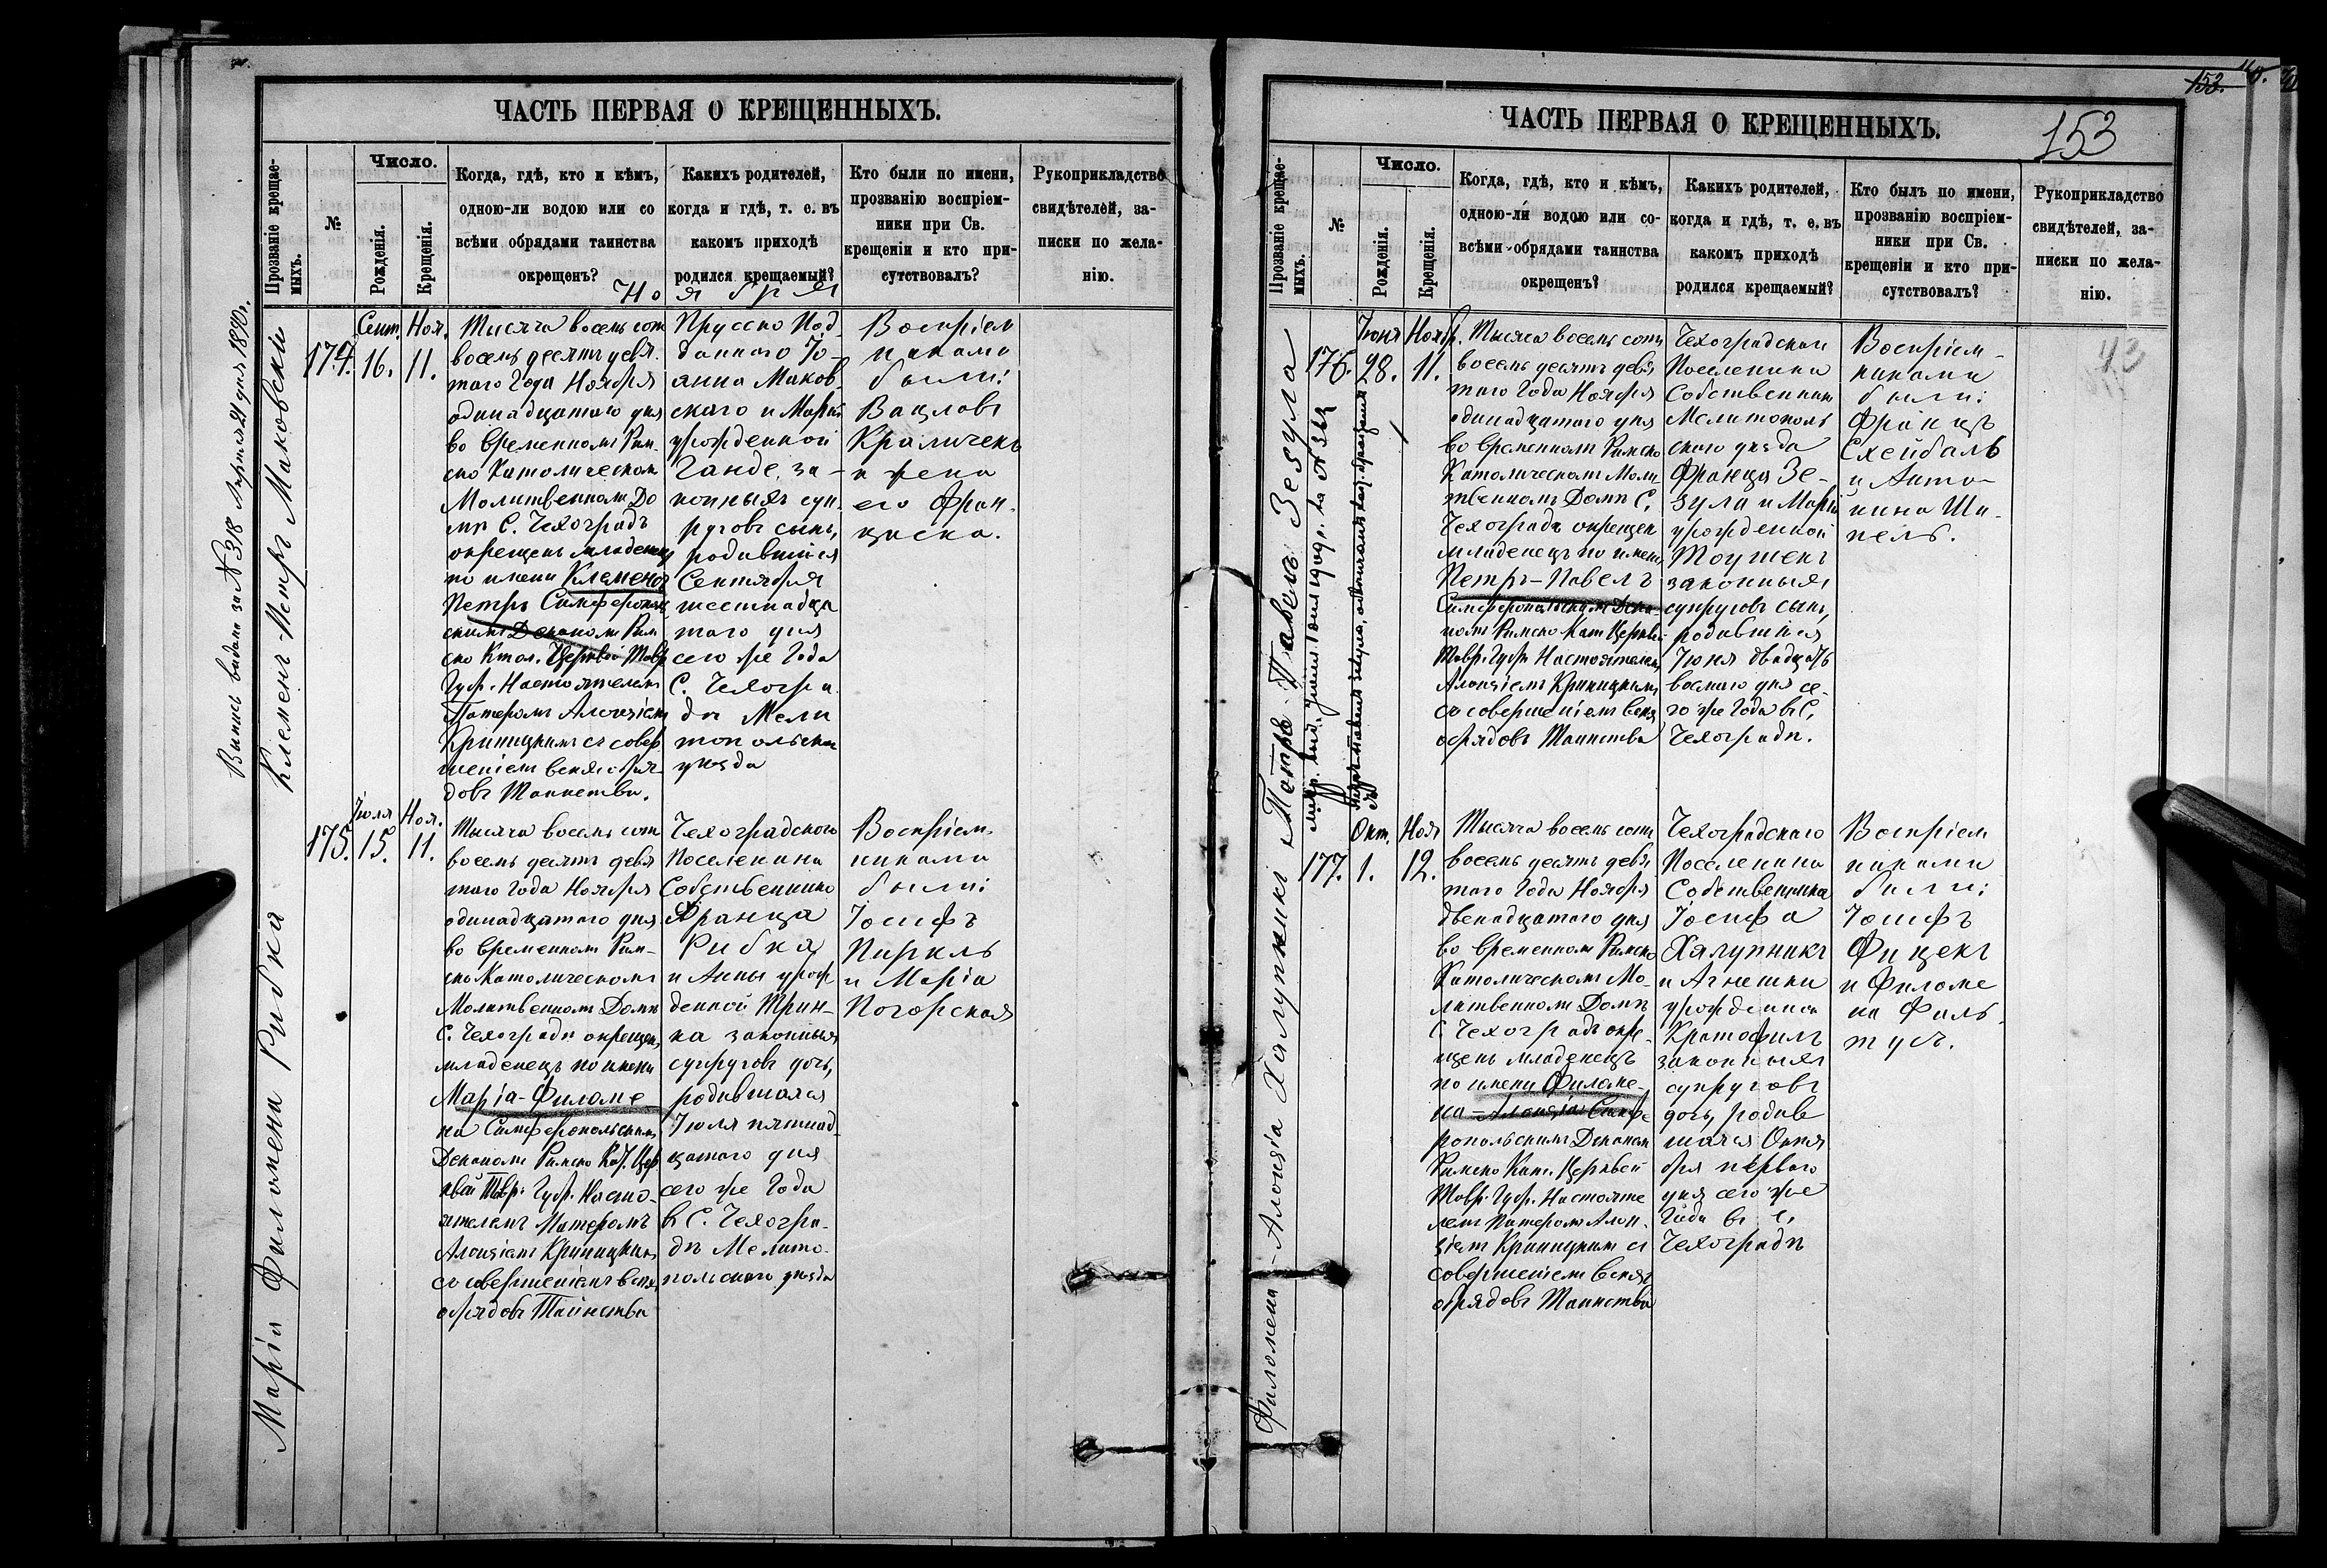 ЧАСТЬ ПЕРВАЯ О КРЕЩЕННЫХЪ.
Прозваніе крещае-
мыхъ.
№
Число.
Рожденія.
Крещенія.
Когда, гдѣ, кто и кѣмъ,
одною-ли водою или со
всѣми обрядами таинства
окрещенъ?
Какихъ родителей,
когда и гдѣ, т. е. въ
какомъ приходѣ
родился крещаемый?
Кто были по имени,
прозванію воспріем-
ники при Св.
крещеніи и кто при-
сутствовалъ?
Рукоприкладство
свидѣтелей, за-
писки по жела-
нію.
Ноября
Клеменъ-Петръ Маковски
174.
Сент.
16.
Ноя.
11.
Тысяча восемь сотъ
восемь десятъ девя
таго Года Ноября
одинадцатаго дня
во временномъ Рим
ско Католическомъ
Молитвенномъ До
мѣ С. Чехоградъ
окрещенъ младенецъ
по имени Клеменсъ
Петръ Симферополь
скимъ Деканомъ Рим
ско Ктол. Церквей Тавр
Губ. Настоятелемъ
Патеромъ Алоизіемъ
Криницкимъ съ совер
шеніемъ всѣхъ обря
довъ Таинства.
Прусско Под
даннаго Іо-
анна Маков
скаго и Маріи
урожденной
Ганде, за-
конныхъ суп
руговъ сынъ,
родившійся
Сентября
шестнадца
таго дня
сего же Года
С. Чехогра
дѣ Мели
топольска
уѣзда
Воспріем
никами
были:
Вацлавъ
Краличекъ
и жена
его Фран-
циска.
Марія Филомена Рибка
175.
Іюля
15.
Ноя.
11.
Тысяча восемь сотъ
восемь десятъ девя
таго Года Ноября
одинадцатаго дня
во временномъ Рим-
ско Католическомъ
Молитвенномъ Домѣ
С. Чехоградѣ окрещенъ
младенецъ по имени
Марія-Филоме
на Симферопольскимъ
Деканомъ Римско Кат. Цер
квей Тавр. Губ. Насто-
ятелемъ Патеромъ
Алоизіемъ Криницкимъ
со совершеніемъ всѣхъ
обрядовъ Таинства
Чехоградскаго
Поселенина
Собственника
Франца
Рибка
и Анны урож
денной Трин-
ка законныхъ
супруговъ дочь,
родившаяся
Іюля пятнад
цатаго дня
сего же Года
въ С. Чехогра-
дѣ Мелито-
польскаго уѣзда
Воспріем-
никами
были:
Іосифъ
Пиркль
и Марія
Погорская
153
ЧАСТЬ ПЕРВАЯ О КРЕЩЕННЫХЪ.
153.
Прозваніе крещае-
мыхъ.
№
Число.
Рожденія.
Крещенія.
Когда, гдѣ, кто и кѣмъ,
одною-ли водою или со-
всѣми обрядами таинства
окрещенъ?
Какихъ родителей,
когда и гдѣ, т. е. въ
какомъ приходѣ
родился крещаемый?
Кто былъ по имени,
прозванію воспріем-
ники при Св.
крещеніи и кто при-
сутствовалъ?
Рукоприкладство
свидѣтелей, за-
писки по жела-
нію.
Петръ-Павелъ Зезула
176.
Іюня
28.
Нояб.
11.
Тысяча восемь сотъ
восемь десятъ девя
таго Года Ноября
одинадцатаго дня
во временномъ Римско
Католическомъ Моли
твенномъ Домѣ С.
Чехоградъ окрещен
младенецъ по имени
Петръ-Павелъ
Симферопольскимъ Дека-
номъ Римско Кат Церквей
Тавр. Губ. Настоятелемъ
Алоизіемъ Криницкимъ
со совершеніемъ всѣхъ
обрядовъ Таинства
Чехоградскаго
Поселенина
Собственник
Мелитополь
скаго уѣзда
Франца Зе-
зула и Маріи
урожденной
Тоушекъ
законныхъ
супруговъ сынъ,
родившійся
Іюня двадцать
восмаго дня се-
го же Года въ С.
Чехоградѣ.
Воспріем-
никами
были:
Францъ
Схейбаль
и Анто-
нина Ша-
пель.
Филомена-Алоизія Халупникъ
177.
Окт.
1.
Ноя
12.
Тысяча восемь сотъ
восемь десятъ девя
таго Года Ноября
двенадцатаго дня
во временномъ Римско
Католическомъ Мо-
литвенномъ Домѣ
С. Чехоградъ окре-
щенъ младенецъ
по имени Филоме-
на-Алоизія Симфе
ропольскимъ Деканом
Римско Кат. Церквей
Тавр. Губ. Настояте
лемъ Патеромъ Алои-
зіемъ Криницкимъ съ
совершеніемъ всѣхъ
обрядовъ Таинства
Чехоградскаго
Поселенина
Собственника
Іосифа
Халупникъ
и Агнешки
урожденной
Кратофиль
законныхъ
супруговъ
дочь, родив
шаяся Октя
бря перваго
дня сего же
Года въ С.
Чехоградѣ
Воспріем
никами
были:
Іосифъ
Фицекъ
и Филоме
на Фаль
тусъ.